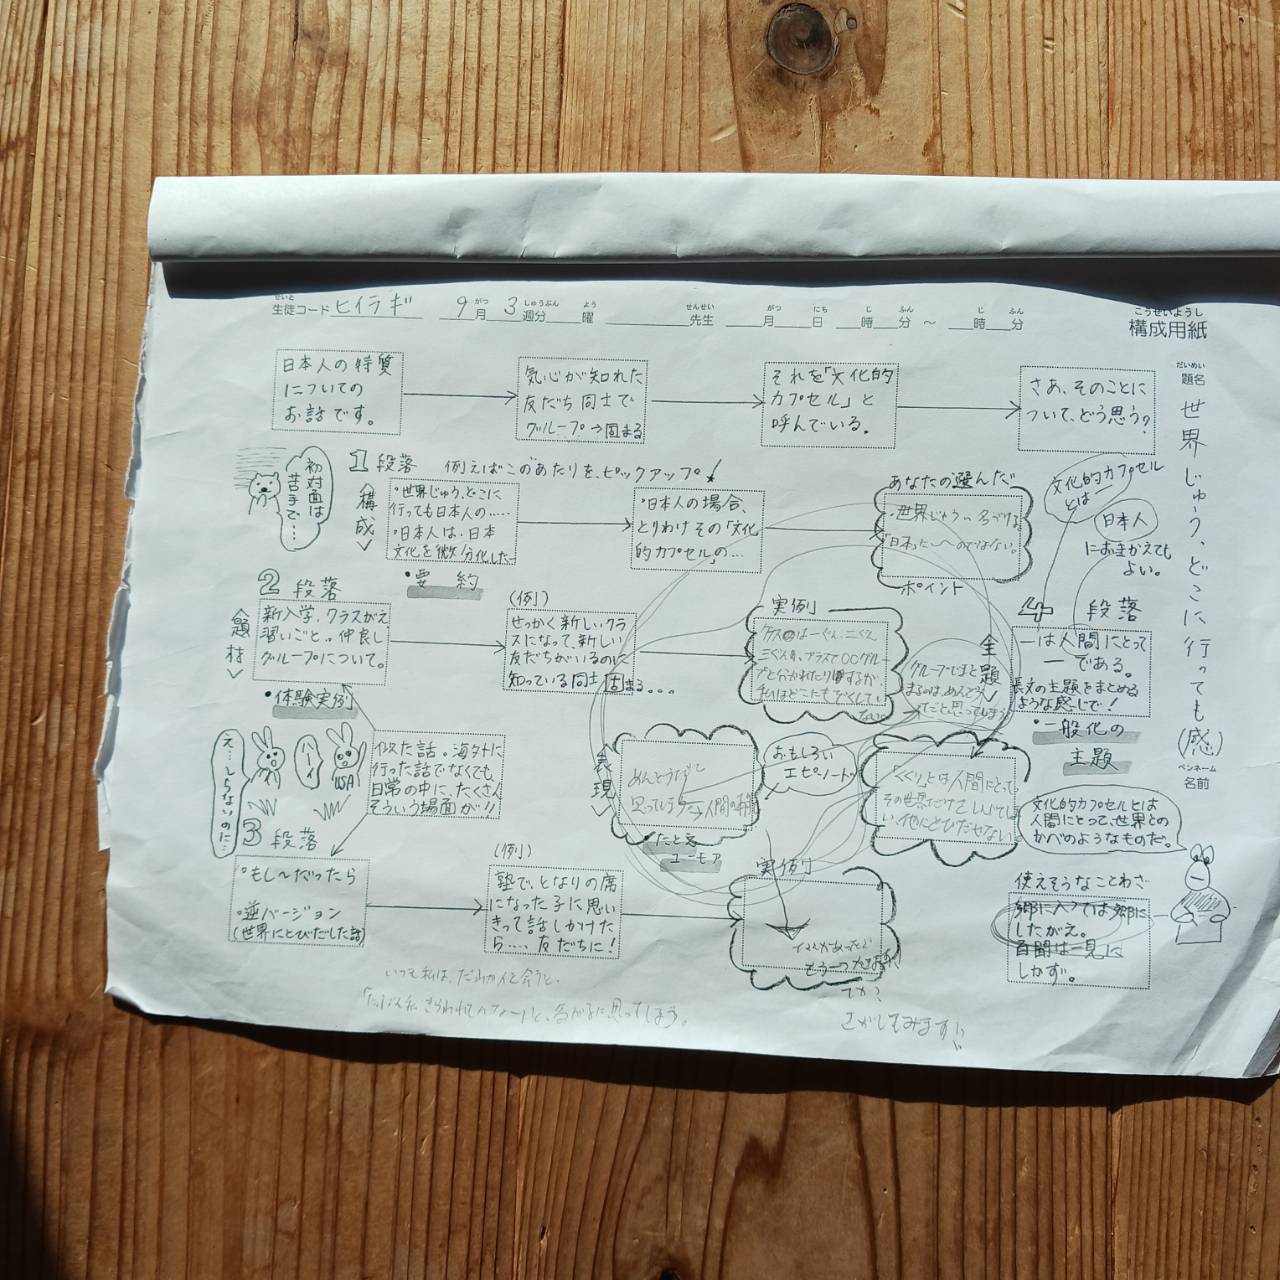 構成用紙
こうせいようし
生徒コード ヒイラギ 9月3週分 曜 先生 月 日 時 分 ~ 時 分
せいと がつ しゅうぶん よう せんせい がつ にち じ ふん じ ふん
だいめい
題名 世界じゅう、どこに行っても(感)
ペンネーム
名前
日本人の特質
についての
お話です。
気心が知れた
友だち同士で
グループ→固まる
それを「文化的
カプセル」と
呼んでいる。
さあ、そのことに
ついて、どう思う?
初対面は
苦手で…
1段落 例えばこのあたりを、ピックアップ!
<構成>
・世界じゅう、どこに
行っても日本人の……
・日本人は、日本
文化を微分化した―
・要約
・日本人の場合、
とりわけその「文化
的カプセルの…
あなたの選んだ
・世界じゅう
ポイント
文化的カプセル
とは
日本人
におきかえても
よい。
2段落
<題材>
新入学、クラスがえ
習いごと。。仲良し
グループについて。
・体験実例
(例)
せっかく新しいクラ
スになって、新しい
友だちがいるのに
知っている同士固まる...
実例
三ぐん
私はどこにも
<主題>
グループでまと
まるのは、めんどう
だと思ってしまう
4段落
―は人間にとって
―である。
長文の主題をまとめる
ような感じで!
・一般化の
主題
え…しらないのに…
ハーイ
USA
似た話。海外に
行った話でなくても、
日常の中に、たくさん
そういう場面が!!
<表現>
めんどうだと
思ってしまう→人間の
・たとえ
ユーモア
おもしろい
エピソード
人間にとって
その世界だけで
他にとびだせない
文化的カプセルとは
人間にとって、世界との
かべのようなものだ。
3段落
・もし~だったら
・逆バージョン
(世界にとびだした話)
(例)
塾で、となりの席
になった子に思い
きって話しかけたら
……友だちに!
実例
もう一つ
さがしてみます!!
使えそうなことわざ
郷に入っては郷に
したがえ。
百聞は一見に
しかず。
いつも私は、だれかと会うと、
と思ってしまう。